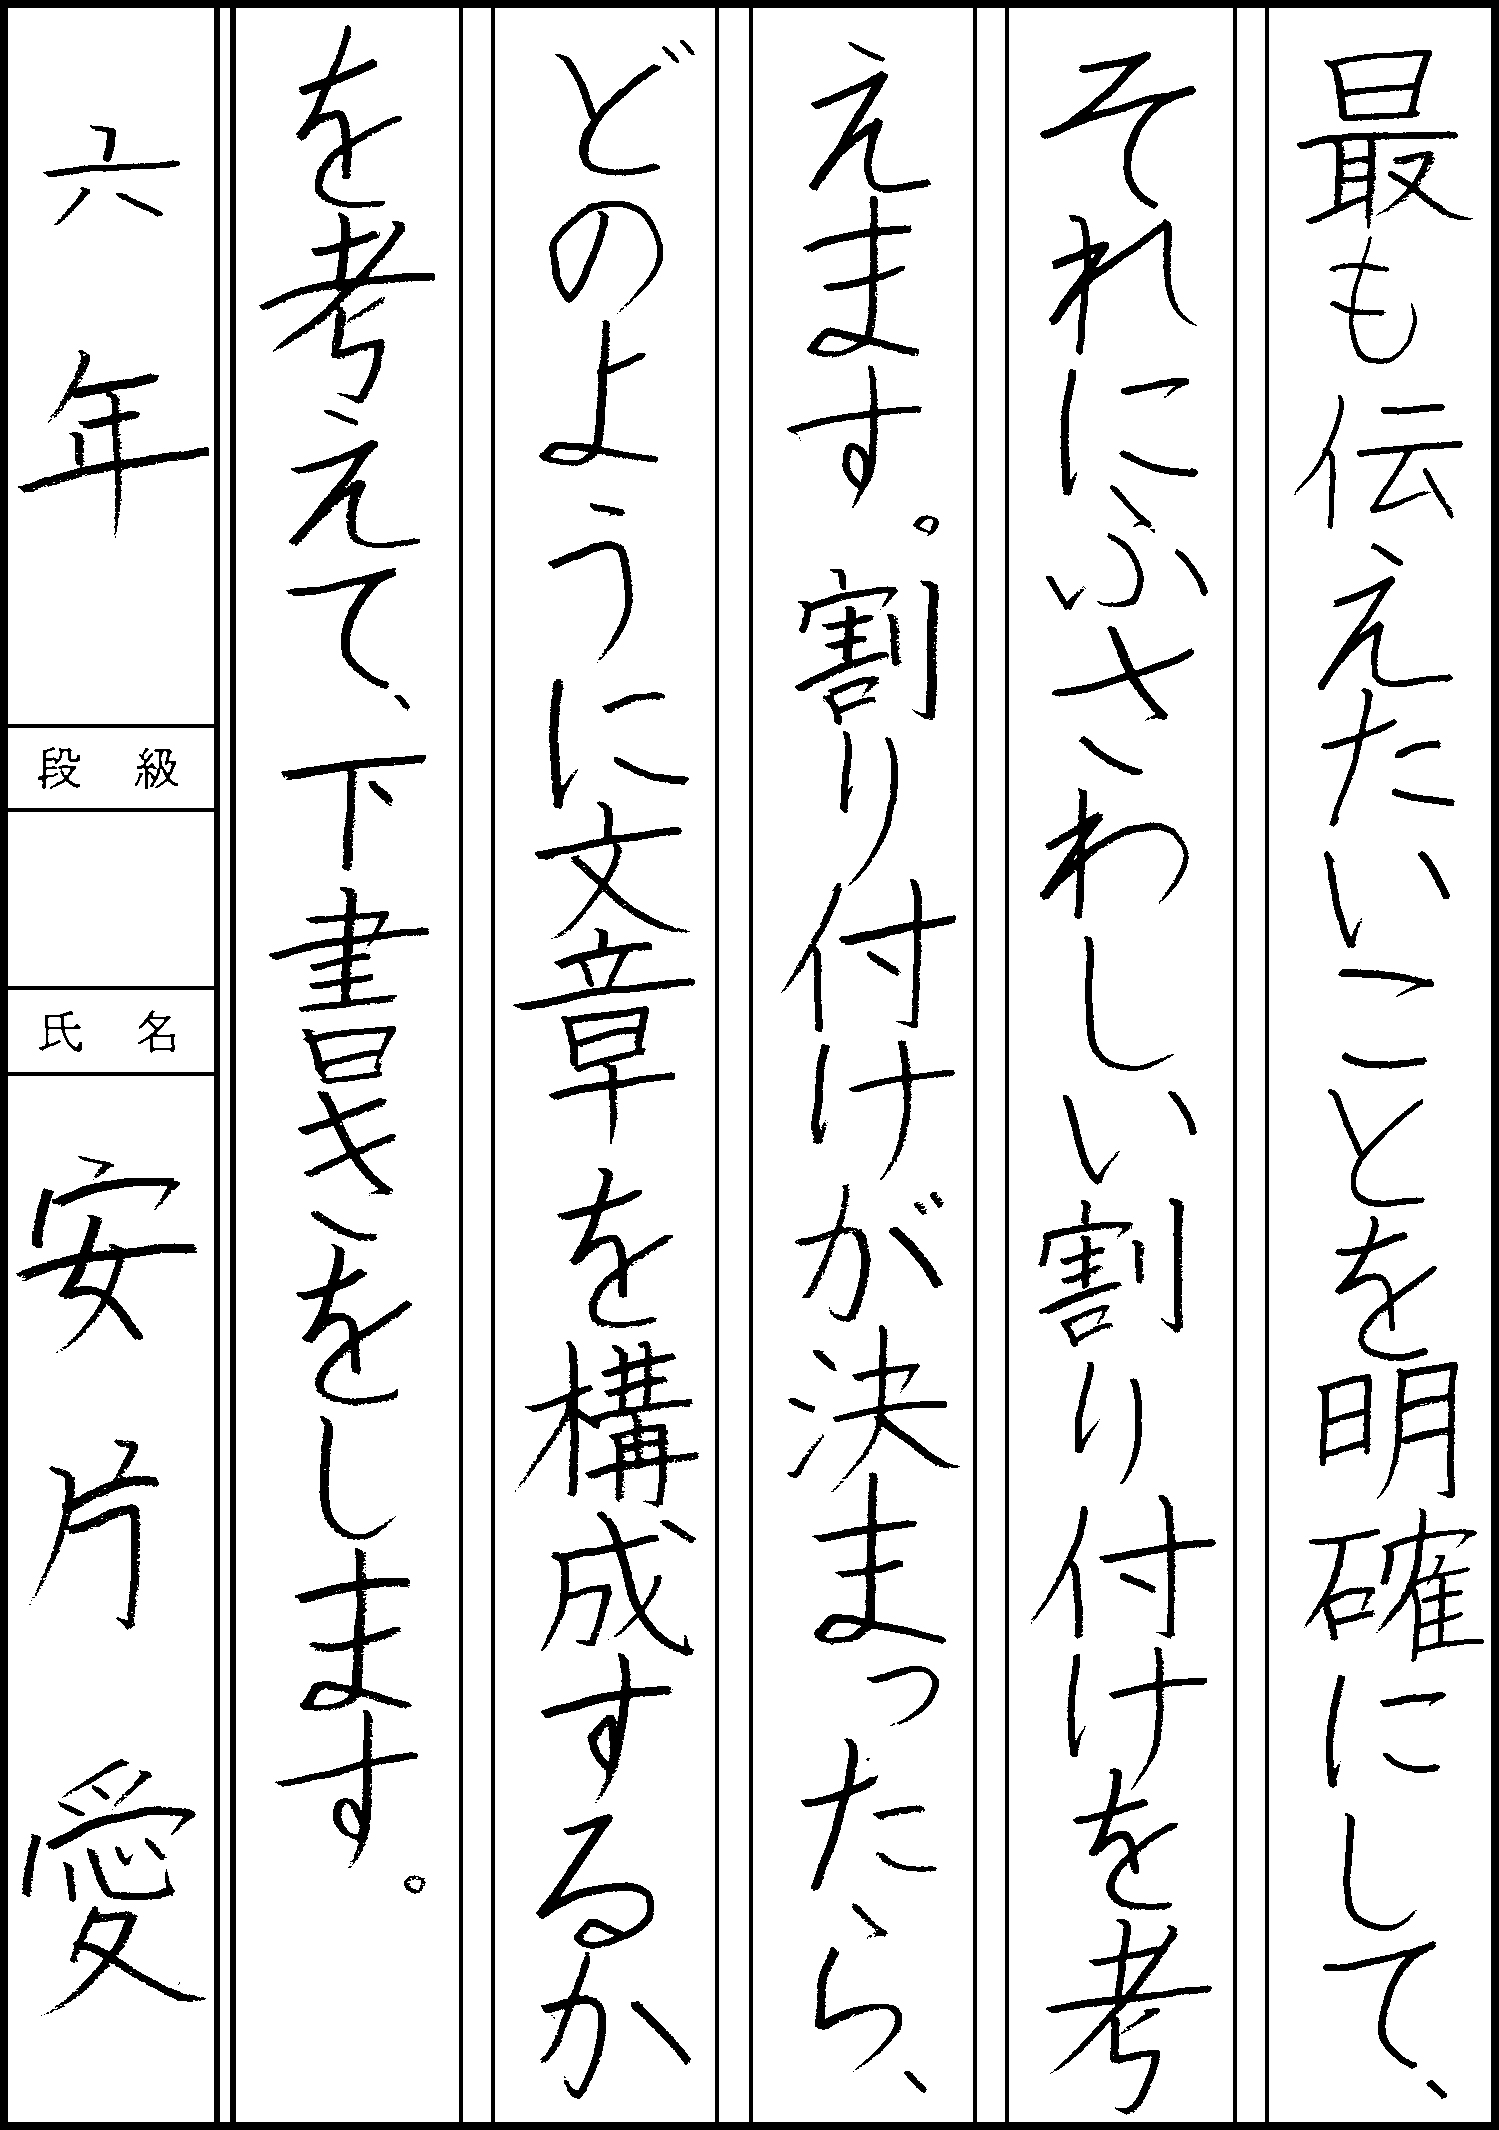 最も伝えたいことを明確にして、
それにふさわしい割り付けを考
えます。割り付けが決まったら、
どのように文章を構成するか
を考えて、下書きをします。
六年
段級
氏名
安片愛